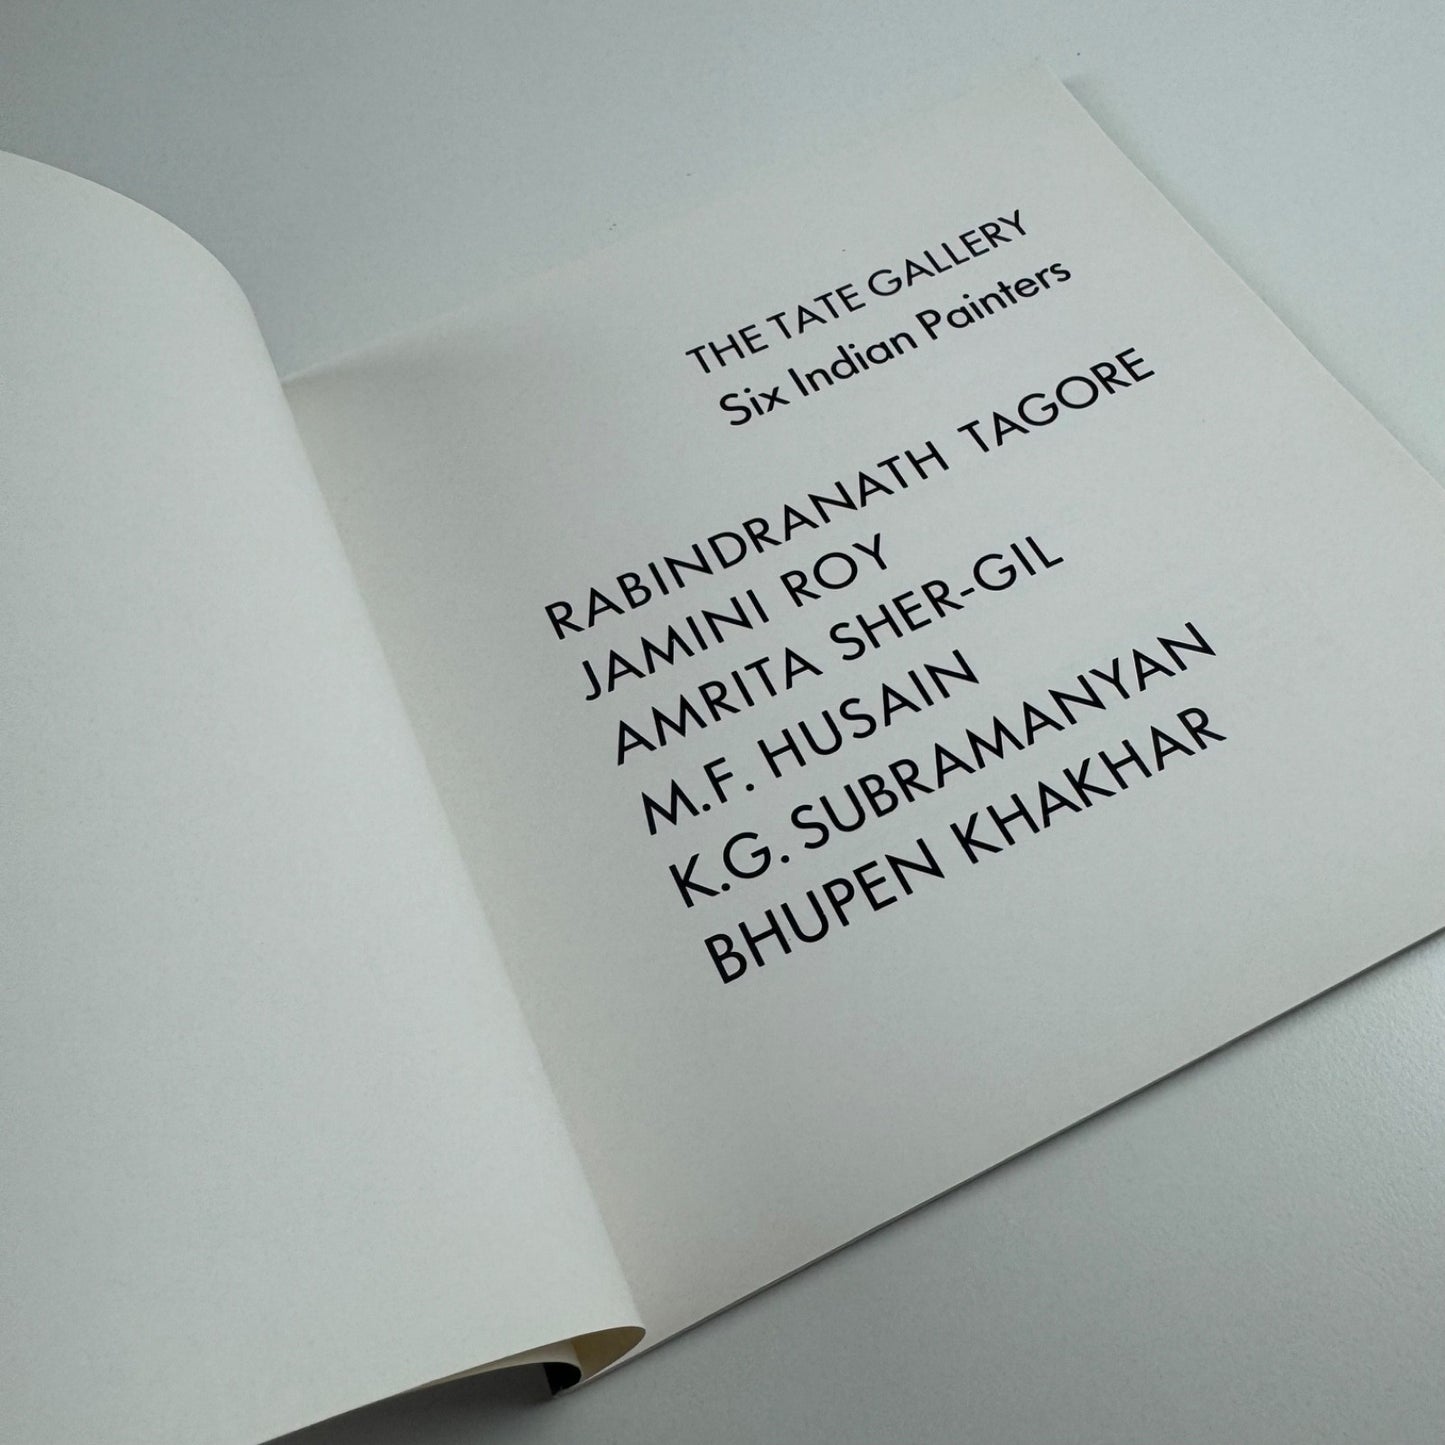 THE TATE GALLERY
Six Indian Painters
RABINDRANATH TAGORE
JAMINI ROY
AMRITA SHER-GIL
M.F. HUSAIN
K.G. SUBRAMANYAN
BHUPEN KHAKHAR